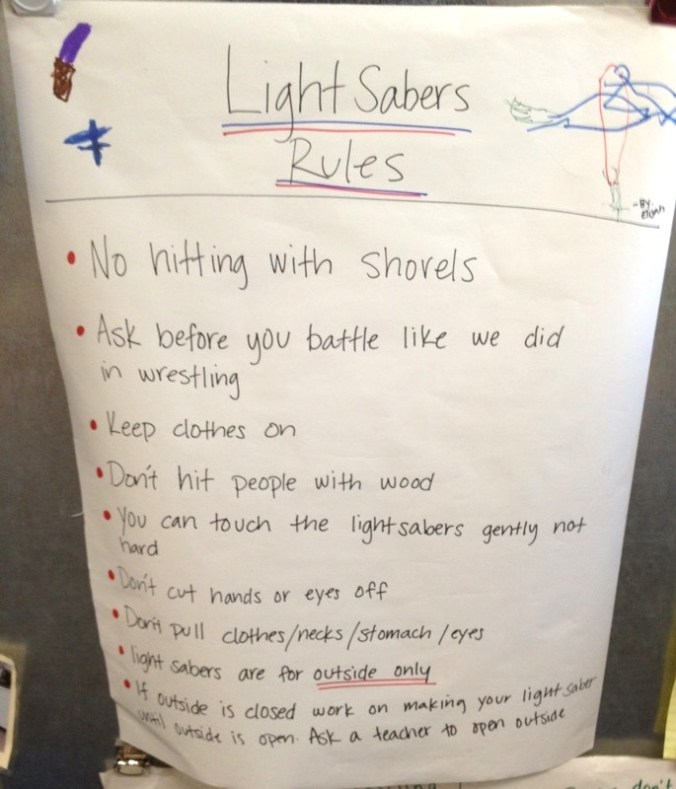 Light Sabers
Rules
- By:
• No hitting with shovels
• Ask before you battle like we did
in wrestling
• Keep clothes on
• Don't hit people with wood
• You can touch the lightsabers gently not
hard
• Don't cut hands or eyes off
• Don't pull clothes/necks/stomach/eyes
• light sabers are for outside only
• If outside is closed work on making your light saber
until outside is open. Ask a teacher to open outside
don't